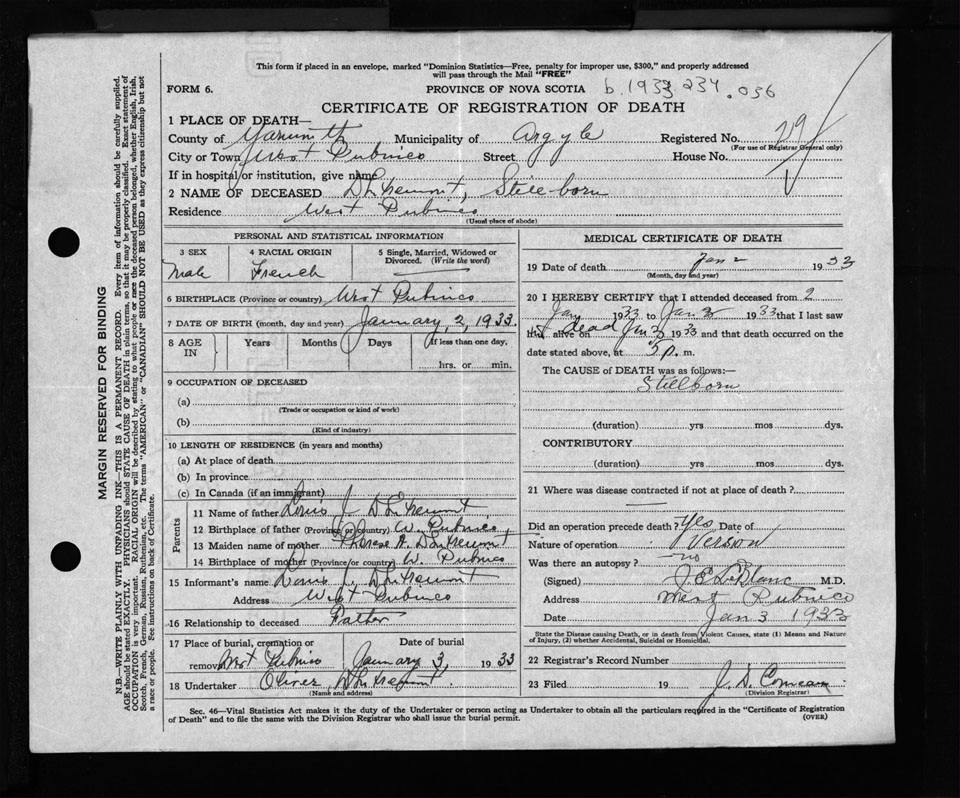 This form if placed in an envelope, marked "Dominion Statistics—Free, penalty for improper use, $300," and properly addressed
will pass through the Mail "FREE"
FORM 6.
PROVINCE OF NOVA SCOTIA
b.1933 234.056
CERTIFICATE OF REGISTRATION OF DEATH
1 PLACE OF DEATH—
County of Yarmouth Municipality of Argyle Registered No. 29
(For use of Registrar General only)
City or Town West Pubnico Street House No.
If in hospital or institution, give name
2 NAME OF DECEASED D'Entremont, Stillborn
Residence West Pubnico
(Usual place of abode)
PERSONAL AND STATISTICAL INFORMATION
3 SEX
Male
4 RACIAL ORIGIN
French
5 Single, Married, Widowed or
Divorced. (Write the word)
6 BIRTHPLACE (Province or country) West Pubnico
7 DATE OF BIRTH (month, day and year) January, 2, 1933.
8 AGE IN Years Months Days If less than one day,
hrs. or min.
9 OCCUPATION OF DECEASED
(a)
(Trade or occupation or kind of work)
(b)
(Kind of industry)
10 LENGTH OF RESIDENCE (in years and months)
(a) At place of death
(b) In province
(c) In Canada (if an immigrant)
Parents
11 Name of father Louis J. D'Entremont
12 Birthplace of father (Province or country) W. Pubnico
13 Maiden name of mother Therese A. D'Entremont
14 Birthplace of mother (Province or country) W. Pubnico
15 Informant's name Louis J. D'Entremont
Address West Pubnico
16 Relationship to deceased Father
17 Place of burial, cremation or Date of burial
removal West Pubnico January 3, 1933
18 Undertaker Oliver D'Entremont
(Name and address)
MEDICAL CERTIFICATE OF DEATH
19 Date of death Jan 2 1933
(Month, day and year)
20 I HEREBY CERTIFY that I attended deceased from 2
Jan 1933 to Jan 2 1933 that I last saw
h alive on dead Jan 2 1933 and that death occurred on
date stated above, at 5 p. m.
The CAUSE of DEATH was as follows:—
Stillborn
(duration) yrs mos dys.
CONTRIBUTORY
(duration) yrs mos dys.
21 Where was disease contracted if not at place of death?
Did an operation precede death? Yes Date of
Nature of operation Version
Was there an autopsy? no
(Signed) J.E. LeBlanc M.D.
Address West Pubnico
Date Jan 3 1933
State the Disease causing Death, or in death from Violent Causes, state (1) Means and Nature
of Injury, (2) whether Accidental, Suicidal or Homicidal.
22 Registrar's Record Number
23 Filed 19 J. D. Comeau
(Division Registrar)
Sec. 46—Vital Statistics Act makes it the duty of the Undertaker or person acting as Undertaker to obtain all the particulars required in the "Certificate of Registration
of Death" and to file the same with the Division Registrar who shall issue the burial permit.
(OVER)
MARGIN RESERVED FOR BINDING
N.B.—WRITE PLAINLY WITH UNFADING INK—THIS IS A PERMANENT RECORD. Every item of information should be carefully supplied.
AGE should be stated EXACTLY. PHYSICIANS should STATE CAUSE OF DEATH in plain terms, so that it may be properly classified. Exact statement of
OCCUPATION is very important. RACIAL ORIGIN will be described by stating to what people or race the deceased person belonged, whether English, Irish,
Scotch, French, German, Russian, Ruthenian, etc. The terms "AMERICAN" or "CANADIAN" SHOULD NOT BE USED as they express citizenship but not
a race or people. See instructions on back of Certificate.